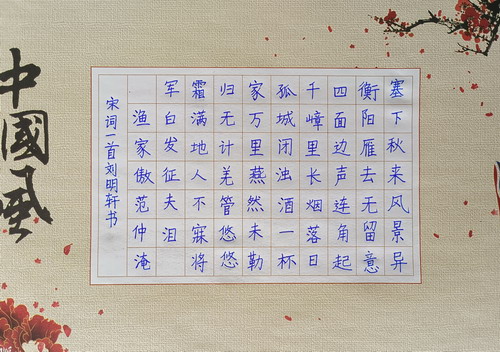 塞下秋来风景异
衡阳雁去无留意
四面边声连角起
千嶂里长烟落日
孤城闭浊酒一杯
家万里燕然未勒
归无计羌管悠悠
霜满地人不寐将
军白发征夫泪
渔家傲范仲淹
宋词一首刘明轩书
中國風